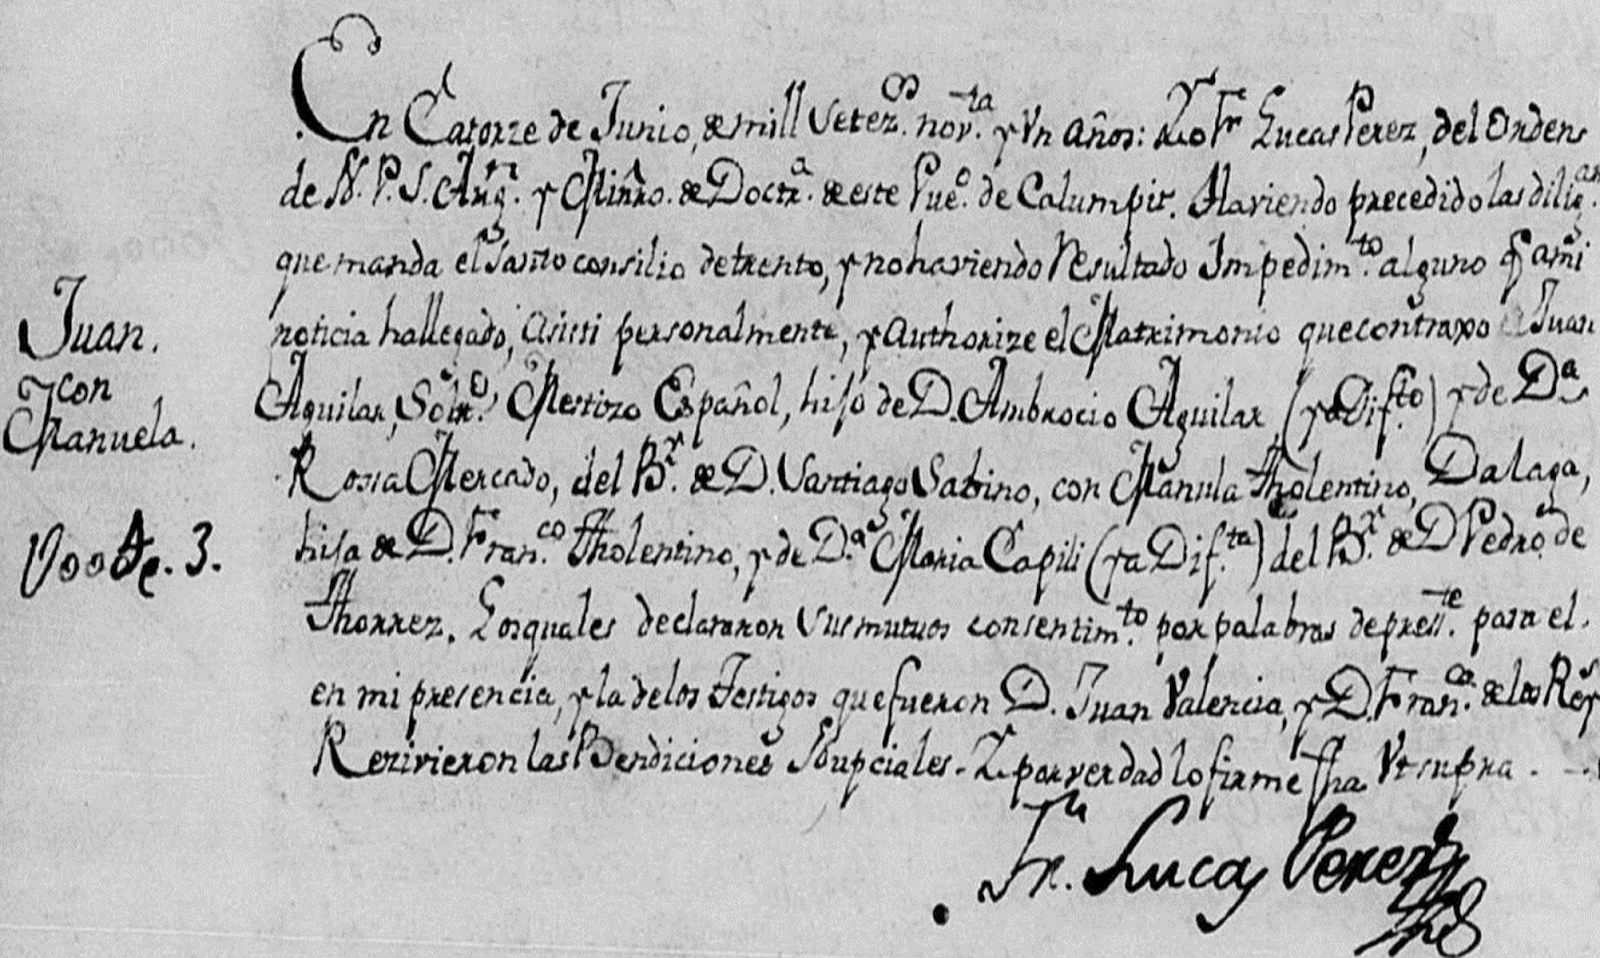 En Catorze de Junio, de mill setez.os nov.ta y Vn años: Yo Fr Lucas Perez, del Orden
de N. P. S. Aug.n y Minrō. de Doctr.a de este Pue.o de Calumpit. Haviendo precedido las dilig.as
que manda el Santo consilio de trento, y no haviendo Resultado Impedim.to alguno q̃ a mi
noticia ha llegado, Asisti personalmente, y Authorize el Matrimonio que contraxo Juan
Juan.
con
Manuela.
Aguilar, Soltr.o Mestizo Español, hijo de D. Ambrocio Aguilar (ya Dif.to) y de D.a
Rossa Mercado, del B.y de D. Santiago Sabino, con Manula Tholentino, Dalaga,
hija de D. Fran.co Tholentino, y de D.a Maria Capili (ya Dif.ta) del B.y de D Pedro de
3.
Thorrez. Los quales declararon sus mutuos consentim.to por palabras de press.te para el.
en mi presencia, y la de los Testigos que fueron D. Juan Valencia, y D. Fran.co de los Reys
Rezivieron las Bendiciones Nupciales. Y por verdad lo firme fha Vt supra.
Fr. Lucas Perez